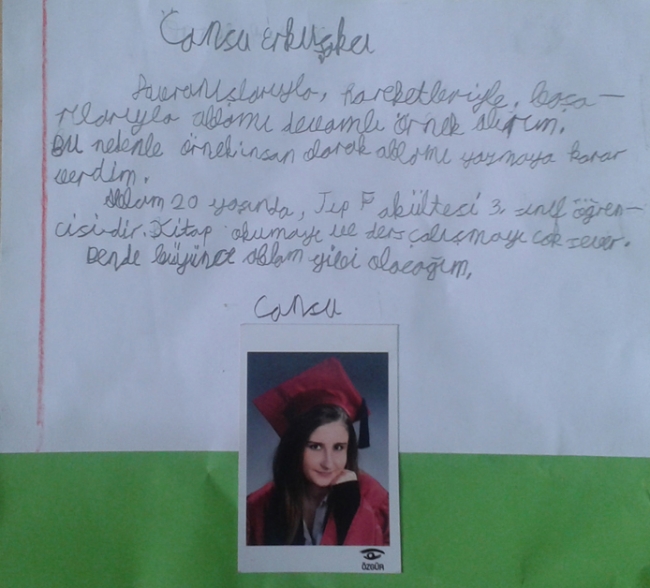 Cansu Erkuşku
Davranışlarıyla, hareketleriyle, başa-
rılarıyla ablamı devamlı örnek alırım.
Bu nedenle örnek insan olarak ablamı yazmaya karar
verdim.
Ablam 20 yaşında, Tıp Fakültesi 3. sınıf öğren-
cisi-dir. Kitap okumayı ve ders çalışmayı çok sever.
Bende büyünce ablam gibi olacağım.
Cansu
ÖZGÜR